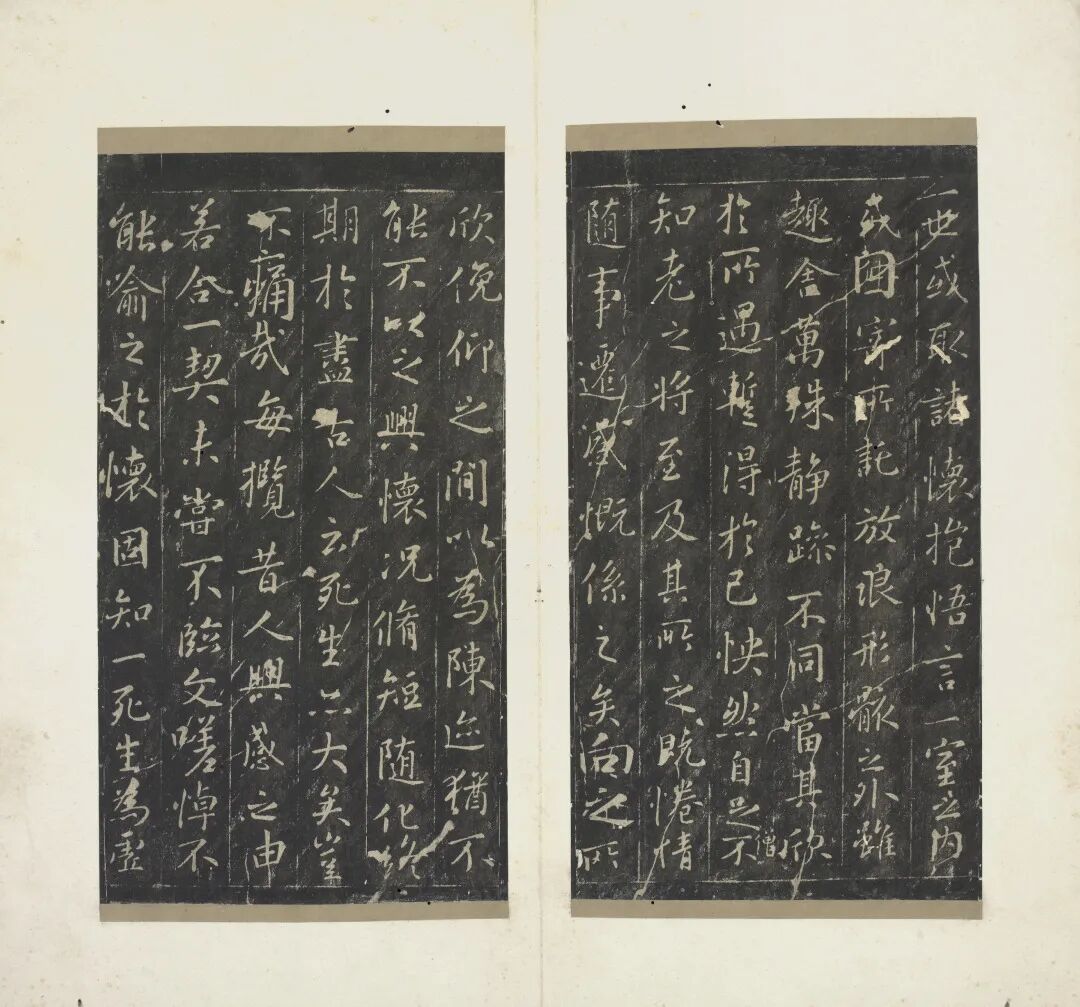 一世或取諸懷抱悟言一室之内
或因寄所託放浪形骸之外雖
趣舍萬殊静躁不同當其欣
僧
於所遇蹔得於己怏然自足不
知老之将至及其所之既惓情
随事遷感慨係之矣向之所
欣俛仰之閒以為陳迹猶不
能不以之興懷況脩短随化終
期於盡古人云死生亦大矣豈
不痛哉每攬昔人興感之由
若合一契未嘗不臨文嗟悼不
能喻之於懷固知一死生為虛